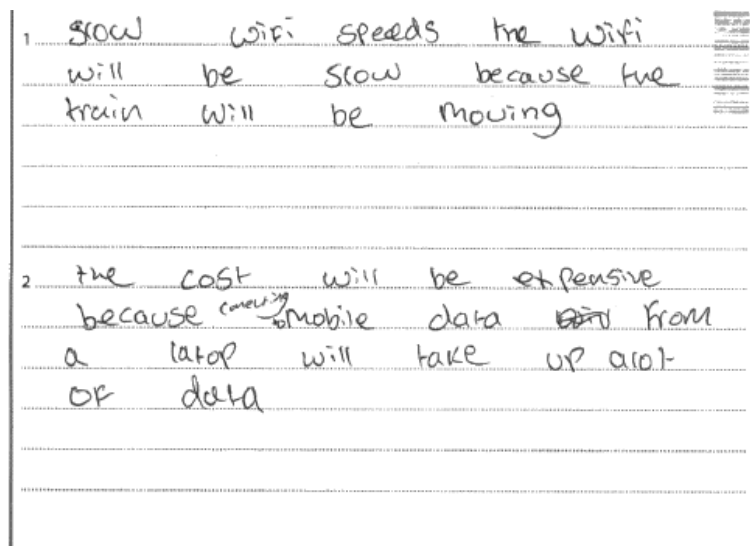 1 slow wifi speeds the wifi
will be slow because the
train will be moving
2 the cost will be expensive
because conecting to mobile data from
a latop will take up alot
of data